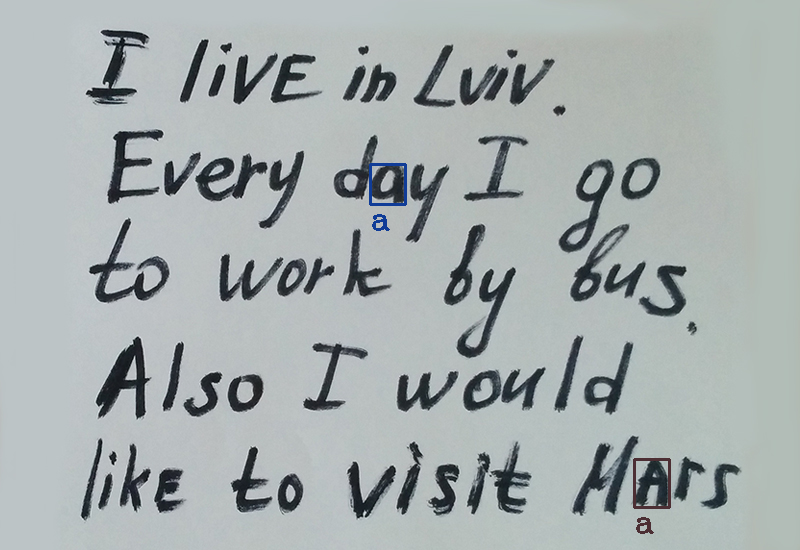 I liVE in Lviv.
Every day I go
a
to work by bus.
Also I would
likE to visit MArs
a